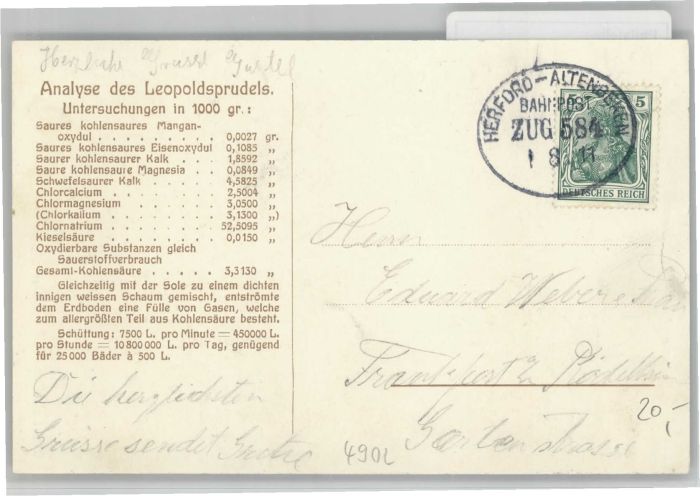 Herzliche Grüsse
Analyse des Leopoldsprudels.
Untersuchungen in 1000 gr.:
Saures kohlensaures Mangan-
oxydul . . . . . . . . . 0,0027 gr.
Saures kohlensaures Eisenoxydul 0,1085 „
Saurer kohlensaurer Kalk . . 1,8592 „
Saure kohlensaure Magnesia . . 0,0849 „
Schwefelsaurer Kalk . . . . 4,5825 „
Chlorcalcium . . . . . . 2,5004 „
Chlormagnesium . . . . . 3,0500 „
(Chlorkalium . . . . . . 3,1300 „)
Chlornatrium . . . . . . 52,5095 „
Kieselsäure . . . . . . . 0,0150 „
Oxydierbare Substanzen gleich
Sauerstoffverbrauch
Gesamt-Kohlensäure . . . . 3,3130 „
Gleichzeitig mit der Sole zu einem dichten
innigen weissen Schaum gemischt, entströmte
dem Erdboden eine Fülle von Gasen, welche
zum allergrößten Teil aus Kohlensäure besteht.
Schüttung: 7500 L. pro Minute = 450000 L.
pro Stunde = 10 800 000 L. pro Tag, genügend
für 25 000 Bäder à 500 L.
Die herzlichsten
Grüsse sendet
4902
HERFORD-ALTENBEKEN
BAHNPOST
ZUG 584
1 8 11
5 5
DEUTSCHES REICH
Herrn
Eduard Weber
Frankfurt a/ Rödelheim
20,-
Gartenstrasse